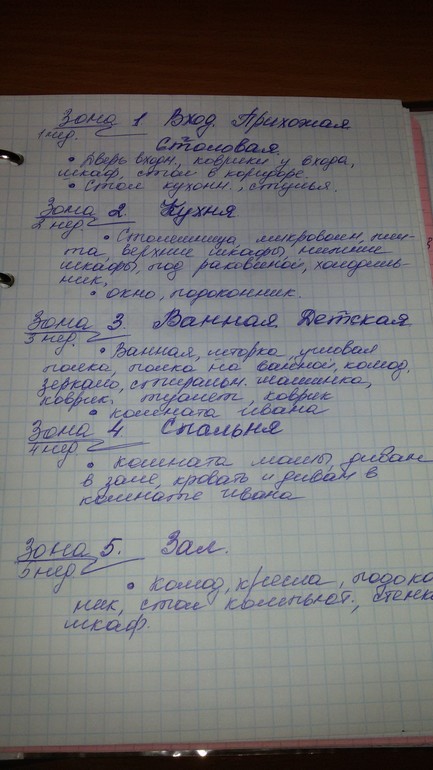 Зона 1 Вход. Прихожая
1 нед.
Столовая.
• Дверь входн., коврики у входа,
шкаф, стол в коридоре.
• Стол кухонн., стулья.
Зона 2. Кухня
2 нед.
• Столешница, микроволн, пли-
та, верхние шкафы, нижние
шкафы, под раковиной, холодиль-
ник,
• окно, подоконник.
Зона 3 Ванная. Детская
3 нед.
• Ванная, шторка, умывал
полка, полка на ванной, комод,
зеркало, стиральн. машинка,
коврик. туалет, коврик
• комната Ивана
Зона 4. Спальня
4 нед
• комната мамы, диван
в зале, кровать и диван в
комнате Ивана
Зона 5. Зал.
5 нед
• комод, кресла, подоко
ник, стол компьют., стенка
шкаф.